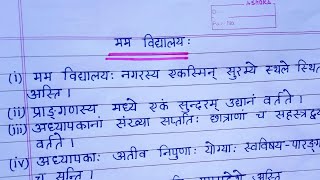 मम विद्यालयः
(i) मम विद्यालयः नगरस्य एकस्मिन् सुरम्ये स्थले स्थित
अस्ति।
(ii) प्राङ्गणस्य मध्ये एकं सुन्दरम् उद्यानं वर्तते।
(iii) अध्यापकानां संख्या सप्ततिः छात्राणां च सहस्त्रद्व
वर्तते।
(iv) अध्यापकाः अतीव निपुणाः योग्याः स्वविषय-पारङ्ग
च सन्ति।